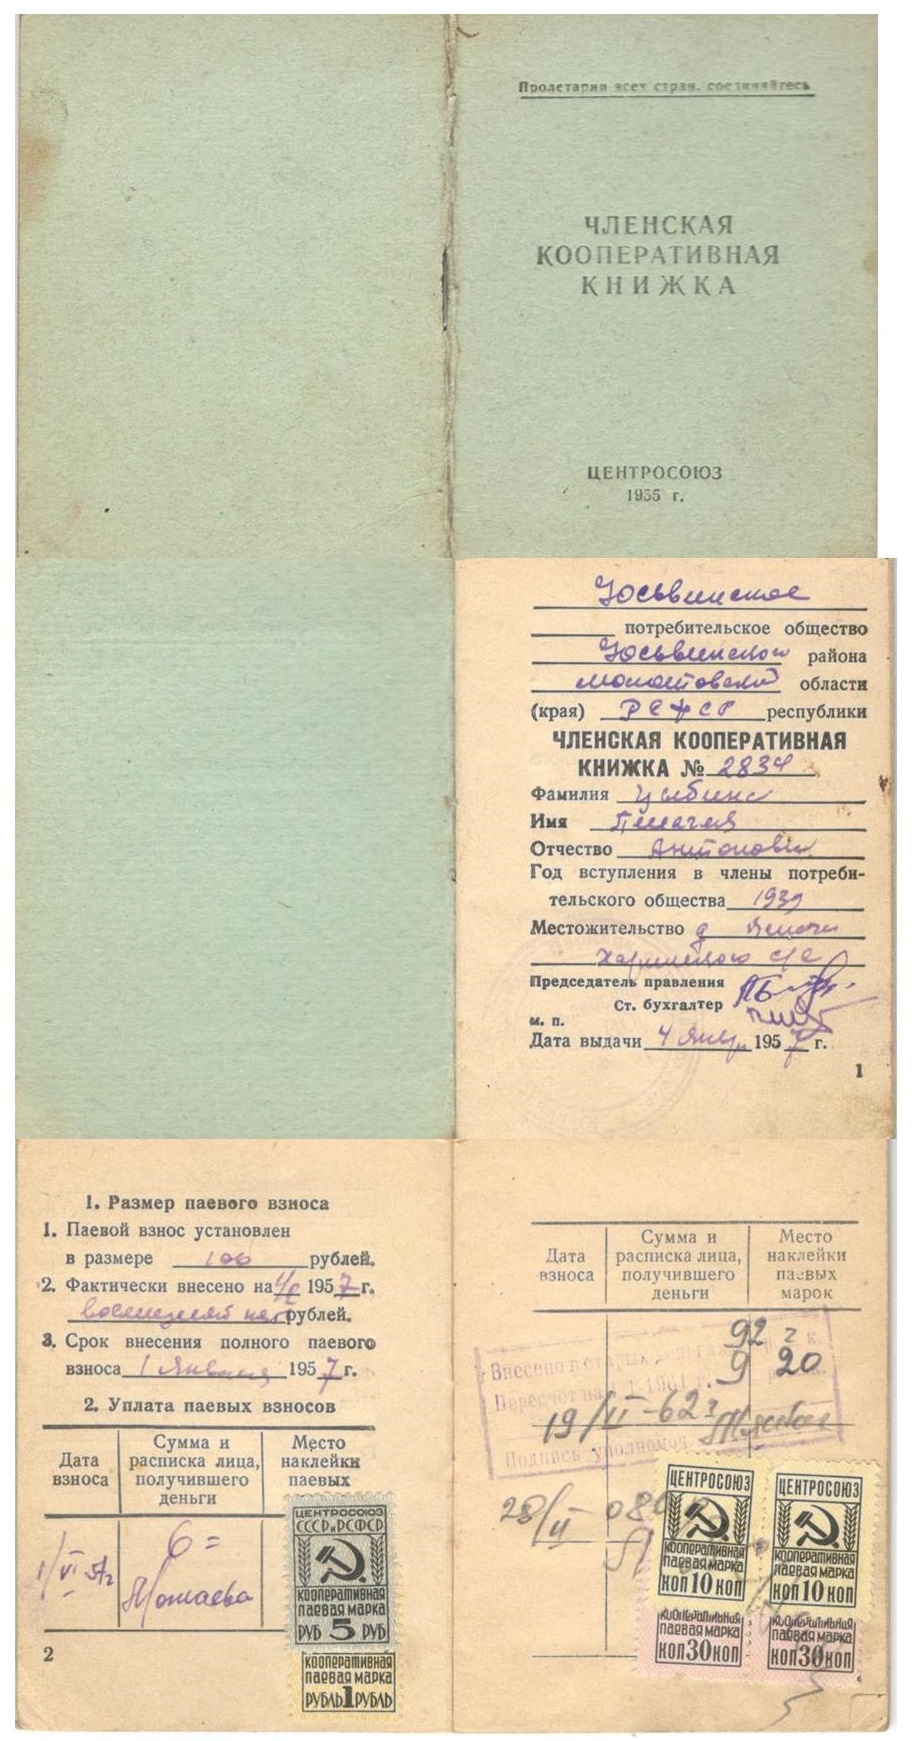 Пролетарии всех стран, соединяйтесь
ЧЛЕНСКАЯ
КООПЕРАТИВНАЯ
КНИЖКА
ЦЕНТРОСОЮЗ
1955 г.
Юсьвинское
потребительное общество
Юсьвинского района
Молотовской области
(края) РСФСР республики
ЧЛЕНСКАЯ КООПЕРАТИВНАЯ
КНИЖКА № 2834
Фамилия
Имя
Отчество
Год вступления в члены потреби-
тельского общества 1939
Местожительство д
с/с
Председатель правления
Ст. бухгалтер
м. п.
Дата выдачи 4 янв. 1957 г.
1
1. Размер паевого взноса
1. Паевой взнос установлен
в размере 100 рублей.
2. Фактически внесено на 1957 г.
рублей.
3. Срок внесения полного паевого
взноса 1 Января 1957 г.
2. Уплата паевых взносов
Дата взноса
Сумма и расписка лица, получившего деньги
Место наклейки паевых
1/VI 57г
6=
ЦЕНТРОСОЮЗ
СССР и РСФСР
КООПЕРАТИВНАЯ
ПАЕВАЯ МАРКА
РУБ 5 РУБ
КООПЕРАТИВНАЯ
ПАЕВАЯ МАРКА
РУБЛЬ 1 РУБЛЬ
2
Дата взноса
Сумма и расписка лица, получившего деньги
Место наклейки паевых марок
92 г к.
Внесено в старых
9 20
Пересчет на 1.1.1961 г.
19/II-62 г
Подпись уполномоч.
28/II
ЦЕНТРОСОЮЗ
КООПЕРАТИВНАЯ
ПАЕВАЯ МАРКА
КОП 10 КОП
ЦЕНТРОСОЮЗ
КООПЕРАТИВНАЯ
ПАЕВАЯ МАРКА
КОП 10 КОП
КООПЕРАТИВНАЯ
ПАЕВАЯ МАРКА
КОП 30 КОП
КООПЕРАТИВНАЯ
ПАЕВАЯ МАРКА
КОП 30 КОП